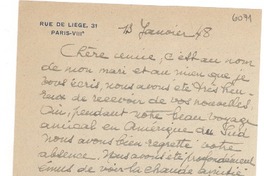 RUE DE LIEGE, 31
PARIS-VIIIᵉ
13 Janvier 48
6071
Chère amie, c'est au nom
de mon mari et au mien que je
vous écris, nous avons été très heu-
reux de recevoir de vos nouvelles.
Oui, pendant notre beau voyage
amical en Amérique du Sud
nous avons bien regretté votre
absence. Nous avons été profondément
émus de voir la chaude